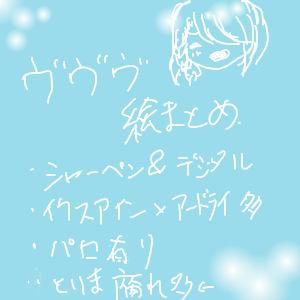 ヴヴヴ
絵まとめ
・シャーペン&デジタル
・イクスアイン×アードライ多
・パロ有り
・とりま腐れ多い